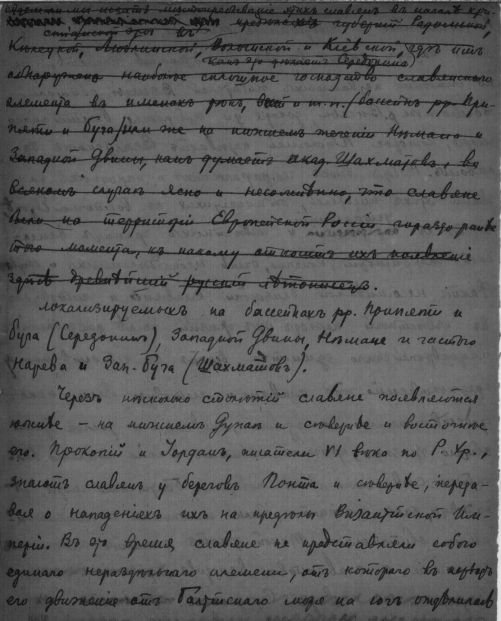 местопребывание этихъ славянъ въ началѣ
предѣлахъ губерній Радомской,
славянской эры въ
Кѣлецкой, Люблинской, Волынской и Кіевской, гдѣ имъ
(какъ это дѣлаетъ Середонинъ)
обнаружено наиболѣе сплошное господство славянскаго
элемента въ именахъ рѣкъ, и т.п. (бассейнъ рр. При-
пяти и Буга) или же на нижнемъ теченіи Нѣмана и
Западной Двины, какъ думаетъ акад. Шахматовъ, во
всякомъ случаѣ ясно и несомнѣнно, что славяне
были на территоріи Европейской Россіи гораздо ранѣе
того момента, къ какому относитъ ихъ появленіе
здѣсь древнѣйшій русскій лѣтописецъ.
локализируемыхъ на бассейнахъ рр. Припяти и
Буга (Середонинъ), Западной Двины, Нѣмана и частью
Нарева и Зап. Буга (Шахматовъ).
Черезъ нѣсколько столѣтій славяне появляются
южнѣе – на нижнемъ Дунаѣ и сѣвернѣе и восточнѣе
его. Прокопій и Іорданъ, писатели VI вѣка по Р. Хр.,
знаютъ славянъ у береговъ Понта и сѣвернѣе, переда-
вая о нападеніяхъ ихъ на предѣлы Византійской Им-
періи. Въ это время славяне не представляли собою
единаго нераздѣльнаго племени, отъ котораго въ періодъ
его движенія отъ Балтійскаго моря на югъ отдѣлилась